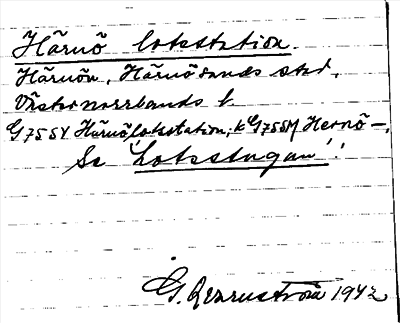 Härnö lotsstation.
Härnön, Härnösands stad,
Västernorrlands l.
G 75 SY Härnö lotsstation; k G 75 SM Hernö –.
Se "Lotsstugan"!
G. 1942